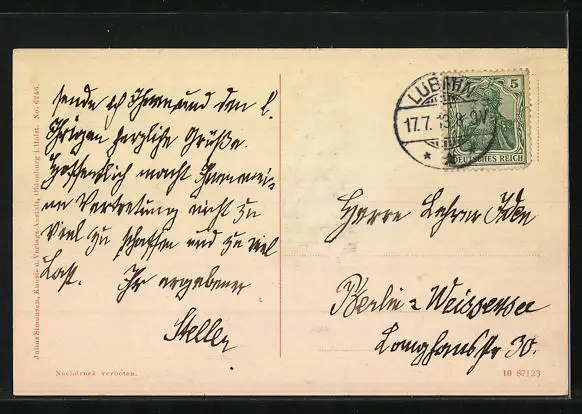 sende ich Ihnen und den l.
Ihrigen herzliche Grüße.
Hoffentlich macht Ihnen mei-
ne Vertretung nicht zu
viel zu schaffen und zu viel
Last. Ihr ergebener
Steller
LUBMIN
17.7.13.8-9V.
5
DEUTSCHES REICH
Herrn Lehrer
Berlin=Weissensee
Langhansstr 30.
Julius Simonsen, Kunst- u. Verlags-Anstalt, Oldenburg i. Holst. No. 6246.
Nachdruck verboten.
10 87123